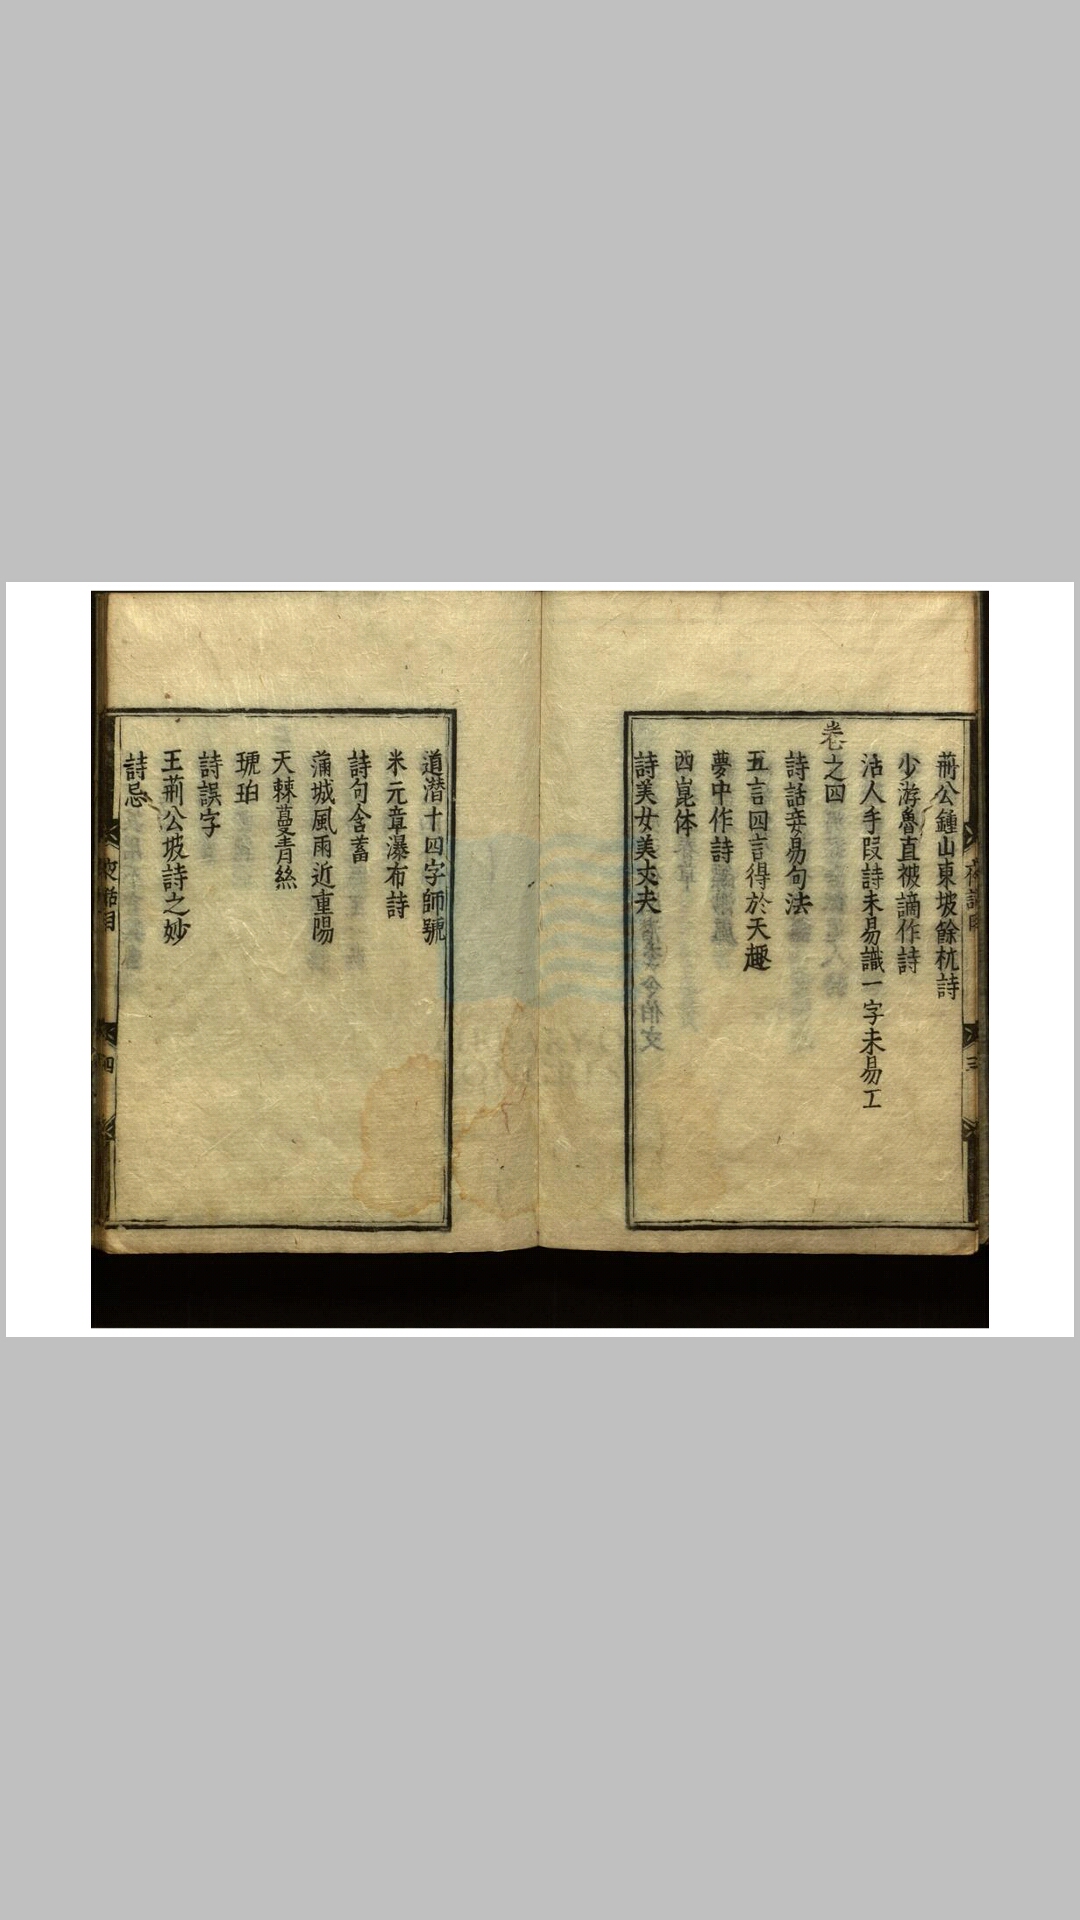 荊公鍾山東坡餘杭詩
少游魯直被謫作詩
沽人手叚詩未易識一字未易工
卷之四
詩話妄易句法
五言四言得於天趣
夢中作詩
西崑体
詩美女美丈夫
道潛十四字師號
米元章瀑布詩
詩句含蓄
蒲城風雨近重陽
天棘蔓青絲
琥珀
詩誤字
王荊公坡詩之妙
詩忌
夜話目
四